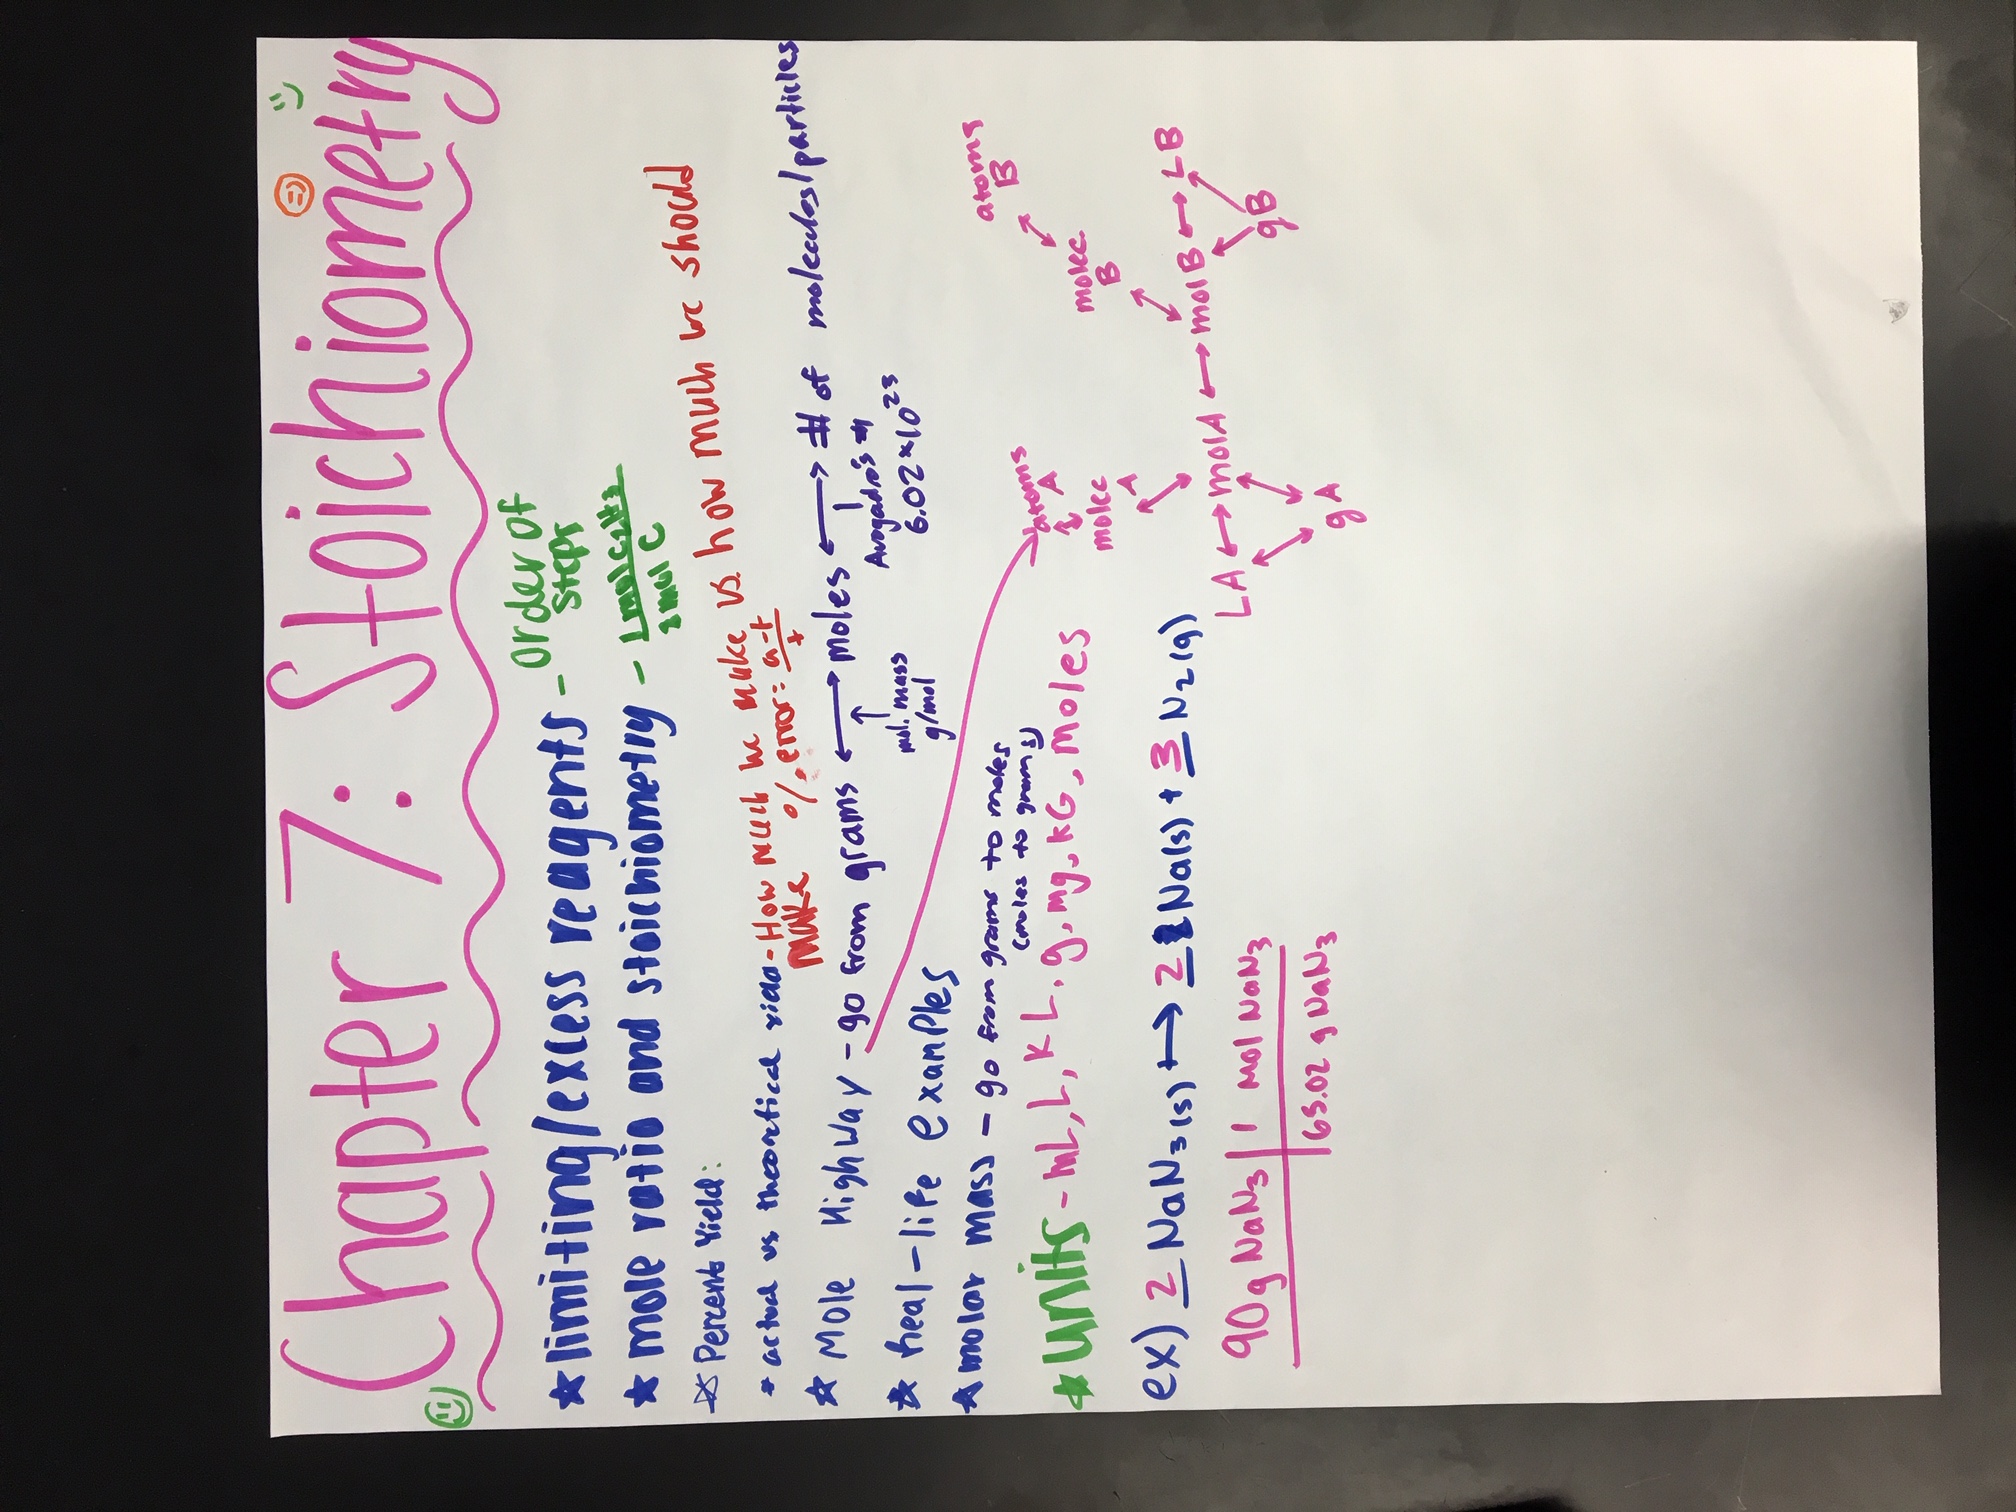 Chapter 7: Stoichiometry
★ limiting/excess reagents - Order of steps
★ mole ratio and stoichiometry - 1 mol C2H2
2 mol C
☆ Percent Yield:
* actual vs theoretical yield - How much we make vs. how much we should
make % error: a-t
t
★ Mole Highway - go from grams ⟷ moles ⟷ # of molecules/particles
mol. mass
g/mol
Avogadro's #
6.02×10²³
★ Real-life examples
★ molar mass - go from grams to moles
(moles to grams)
★ Units - mL, L, KL, g, mg, KG, moles
atoms A
molec A
LA ⟷ mol A ⟷ mol B ⟷ LB
g A
atoms B
molec B
gB
ex) 2 NaN3(s) ⟶ 2 Na(s) + 3 N2(g)
90g NaN3 | 1 mol NaN3
65.02 g NaN3